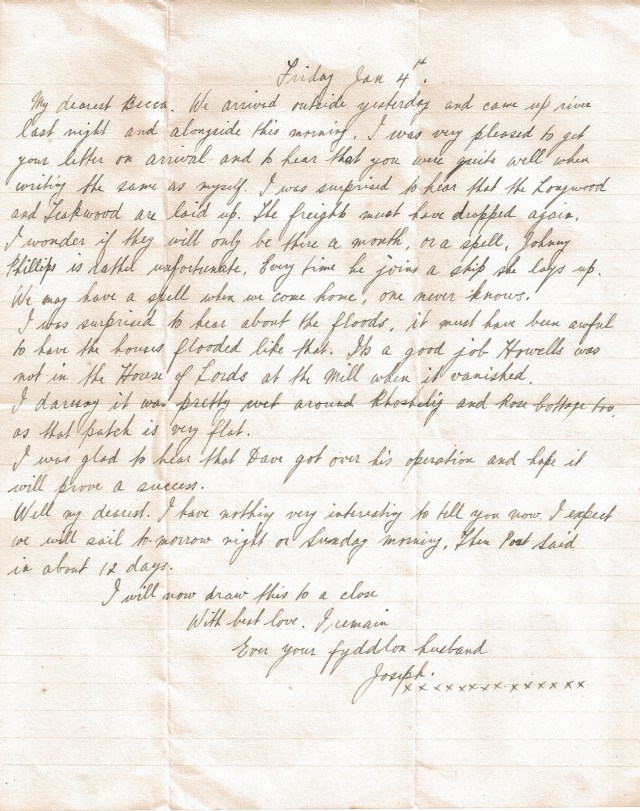 Friday Jan 4th.
My dearest Becca. We arrived outside yesterday and came up river
last night and alongside this morning. I was very pleased to get
your letter on arrival and to hear that you were quite well when
writing the same as myself. I was surprised to hear that the Longwood
and Teakwood are laid up. The freights must have dropped again.
I wonder if they will only be there a month, or a spell, Johnny
Phillips is rather unfortunate. Every time he joins a ship she lays up.
We may have a spell when we come home, one never knows.
I was surprised to hear about the floods, it must have been awful
to have the houses flooded like that. Its a good job Howells was
not in the House of Lords at the Mill when it vanished.
I daresay it was pretty wet around and Rose Cottage too,
as that patch is very flat.
I was glad to hear that Dave got over his operation and hope it
will prove a success.
Well my dearest. I have nothing very interesting to tell you now. I expect
we will sail to-morrow night or Sunday morning, then Port Said
in about 12 days.
I will now draw this to a close
With best love. I remain
Ever your fyddlon husband
Joseph.
x x x x x x x x x x x x x x